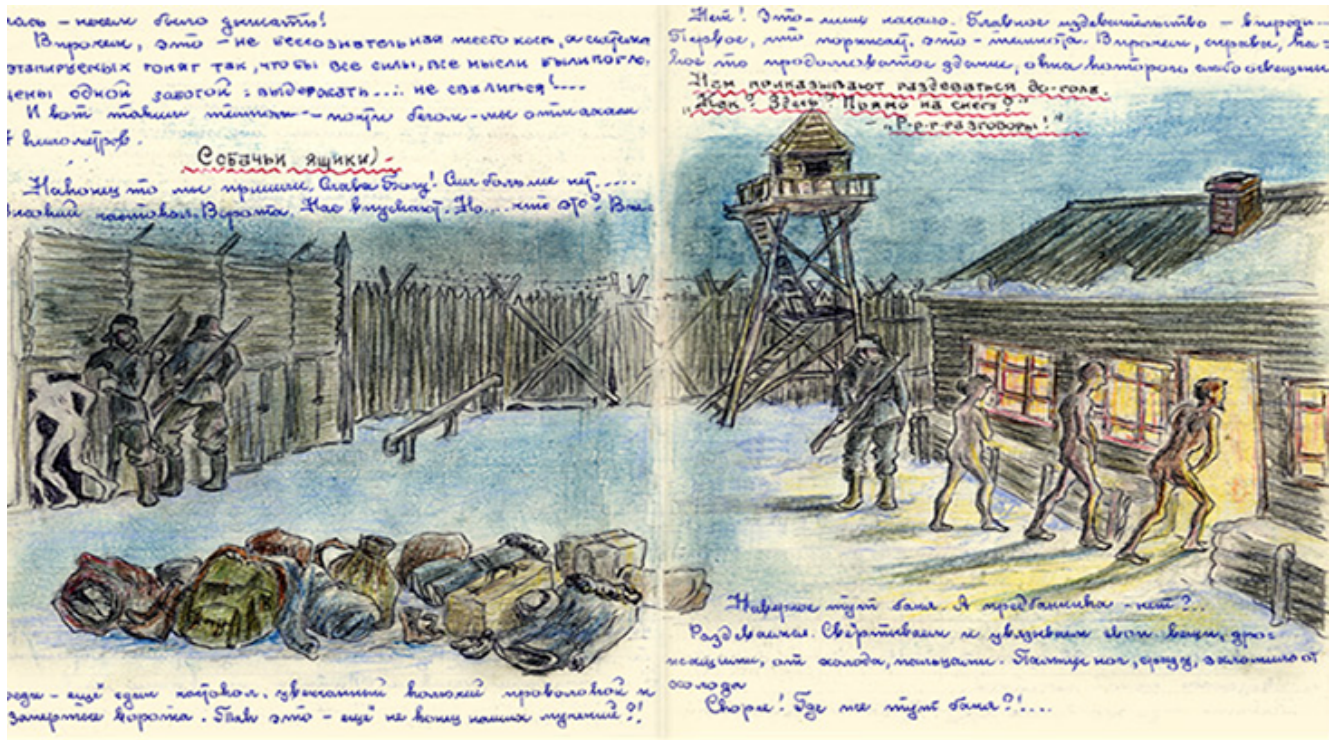 лась - нечем было дышать!
Впрочем, это - не бессознательная жестокость, а система
этапируемых гонят так, чтобы все силы, все мысли были погло-
щены одной заботой: выдержать.... не свалиться!....
И вот таким темпом - почти бегом - мы отмахали
километров.
Собачьи ящики)
Наконец то мы пришли. Слава Богу! Сил больше нет.....
частокол. Ворота. Нас впускают. Но.... что это? Впе-
реди - ещё один частокол, увенчанный колючей проволокой и
запертые ворота. Так это - ещё не конец наших мучений?!
Нет! Это - лишь начало. Главное издевательство - впереди...
Первое, что поражает, это - темнота. Впрочем, справа, ка-
кое то продолговатое здание, окна которого слабо освещены
Нам приказывают раздеваться до-гола.
„Как? Здесь? Прямо на снегу?"
- „Р-р-г-разговоры!"
Наверное тут баня. А предбанника - нет?..
Раздеваемся. Свёртываем и увязываем свои вещи, дро-
жащими, от холода, пальцами. Пальцы ног, сразу, заломило от
холода
Скорее! Где же тут баня?!....